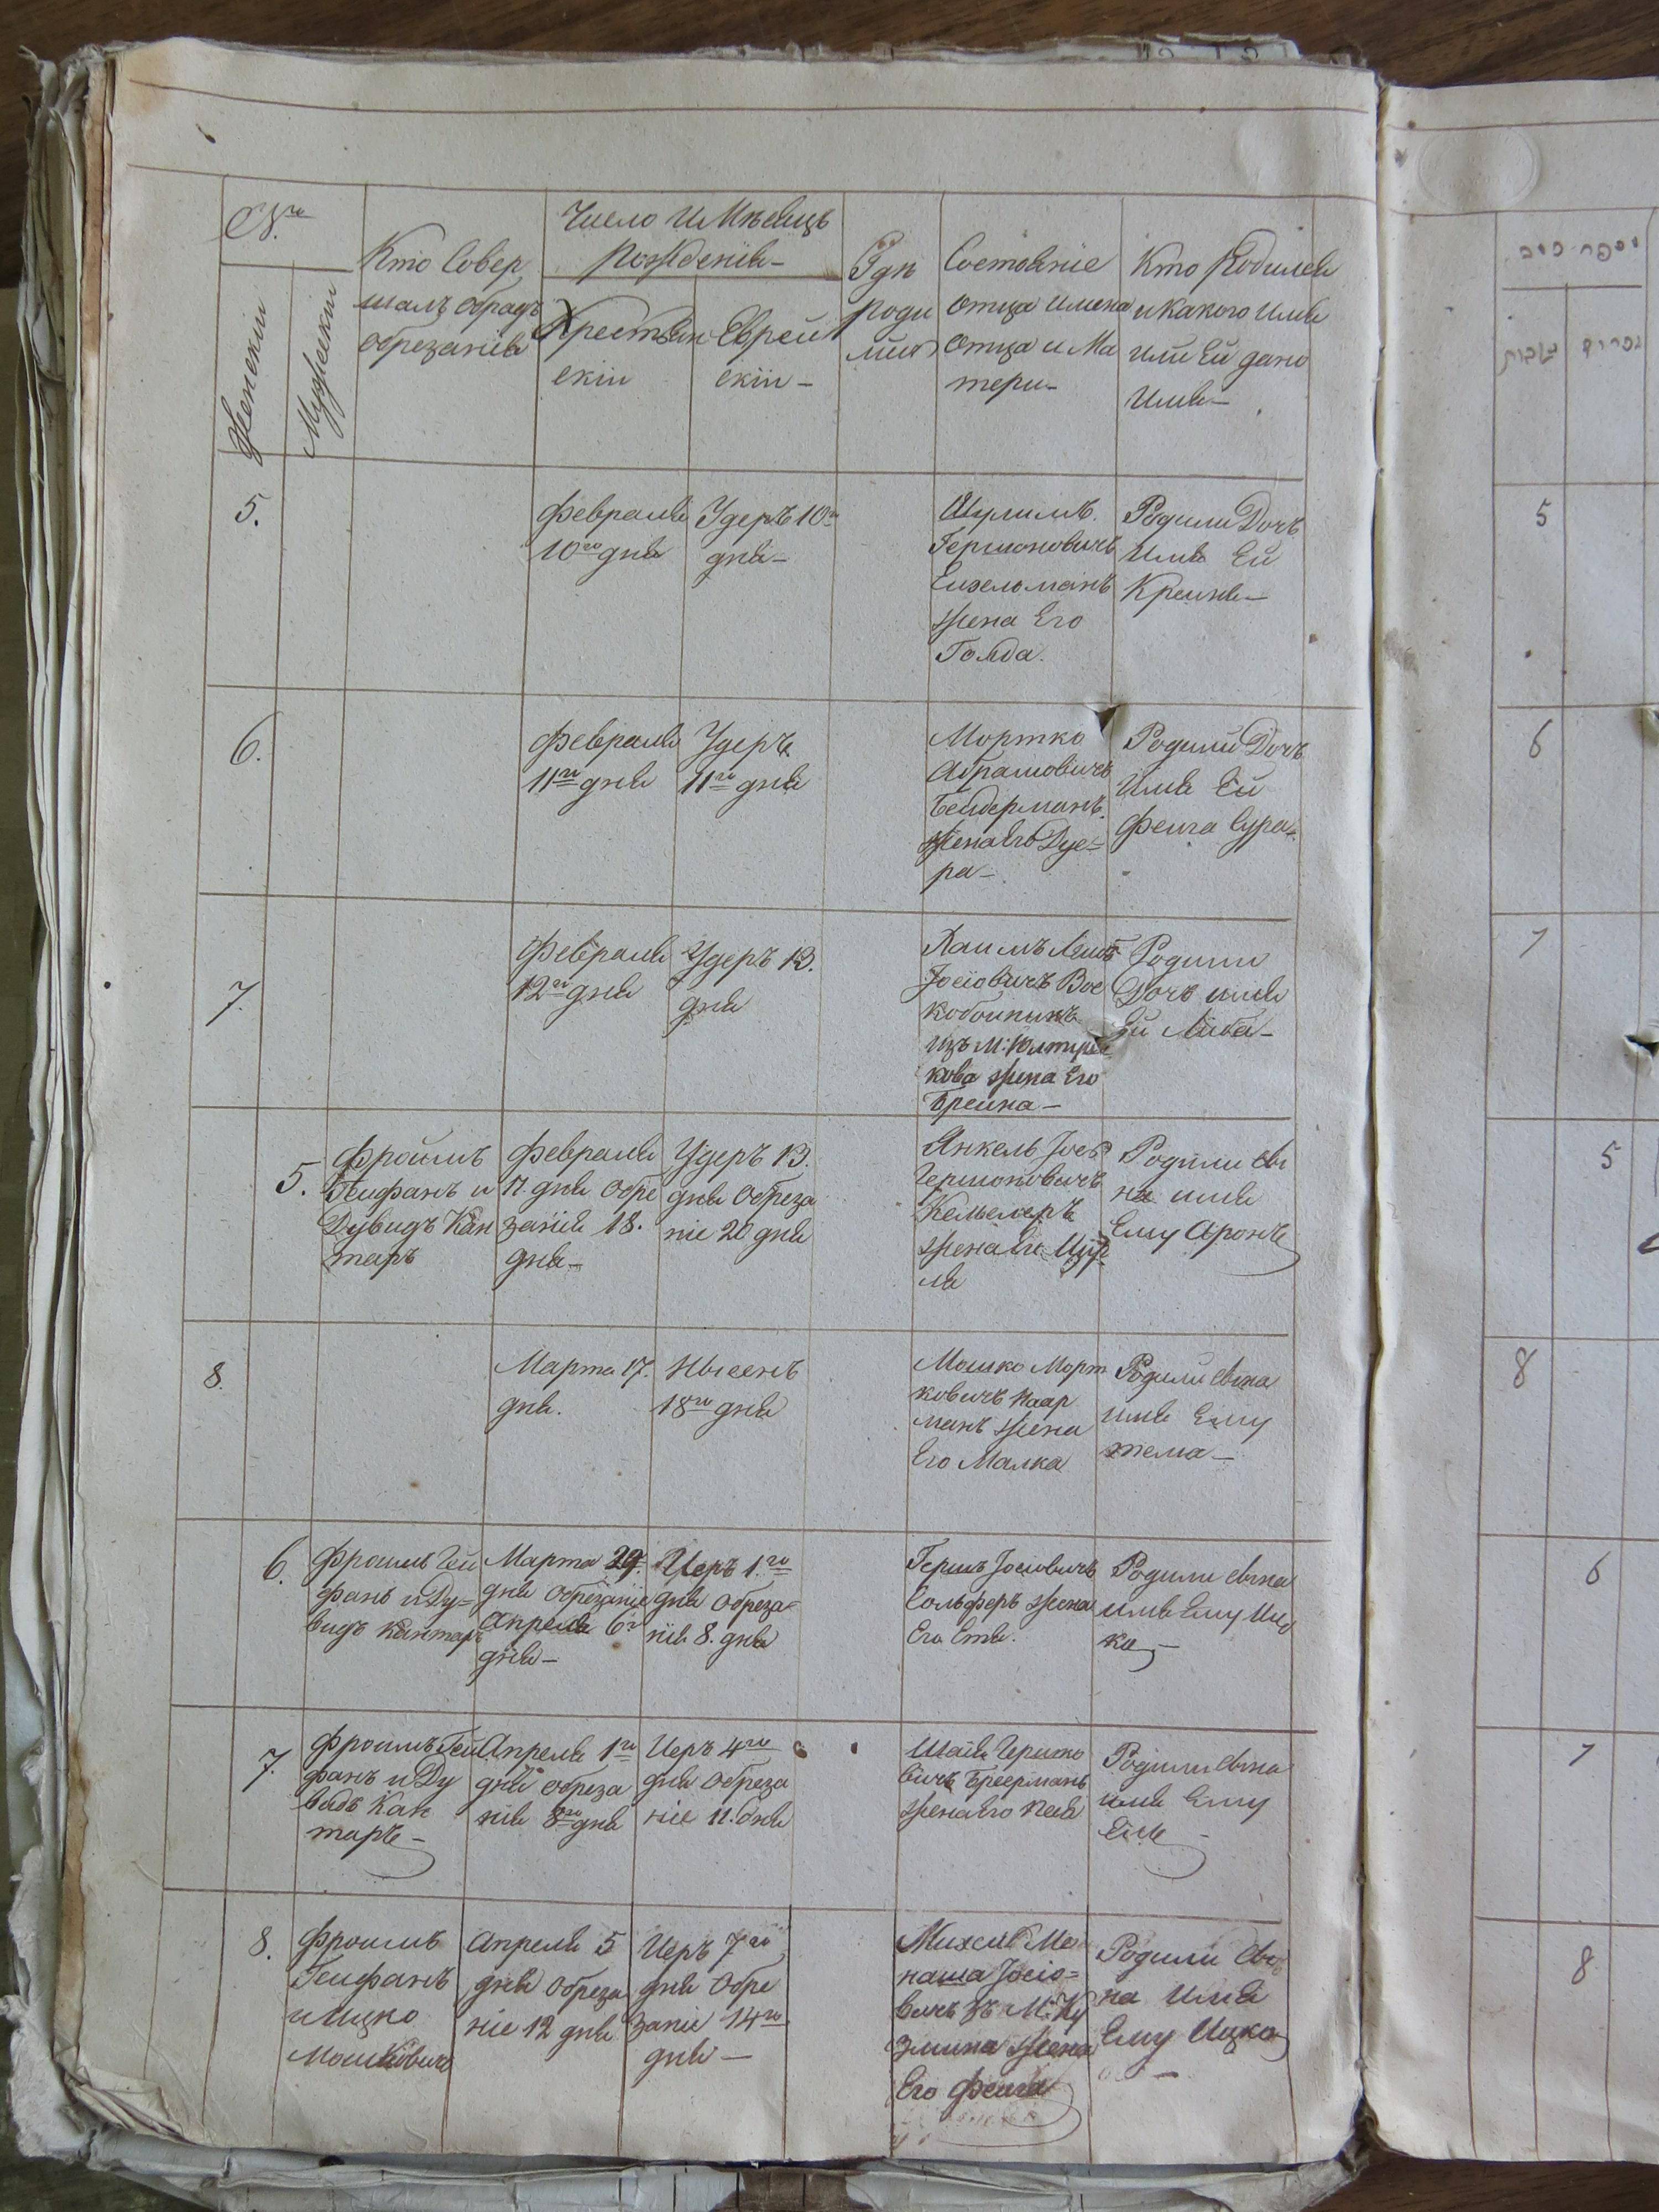 № го
Женскiи
Мужескiи
Кто Совер
шалъ обрадъ
обрезанія
Число и Мѣсяцъ
рожденія—
Хрестіян
скіи
Еврей
скіи—
Гдѣ
роди
лися
Состояніе
отца имена
отца и Ма
тери—
Кто Родился
и какого имя
или Ей дано
имя—
5.
Февраля
10го дня
Удеръ 10го
дня—
Шулимъ
Гершоновичъ
жена Его
Голда.
Родили Дочь
имя Ей
Креиня—
6.
Февраля
11го дня
Удеръ
11го дня
Мортко
Абрамовичъ
Бендерманъ
жена Его Дуе=
ра—
Родили Дочь
имя Ей
Феига Сура
7.
Февраля
12го дня
Удеръ 13.
дня
Хаимъ Леибъ
Іосіовичъ Вос
кобоиникъ
изъ М:
кова жена Его
Бреина—
Родили
Дочь имя
Ей Либа—
5.
Фроимъ
Геифанъ и
Дувидъ Кан
таръ
Февраля
дня Обре
занія 18.
дня—
Удеръ 13.
дня Обреза
ніе 20 дня
Янкель Іось
Гершоновичъ
жена Его Цур
ля
Родили сы
на имя
Ему Аронъ
8.
Марта 17.
дня.
Нысенъ
18го дня
Мошко Морт
ковичъ
манъ жена
Его Малка
Родили сына
имя Ему
тема—
6.
Фроимъ Геи
фанъ и Ду=
видъ Кантаръ
Марта 29.
дня Обрезаніе
Апреля 6го
дня—
Иеръ 1.го
дня Обреза=
нія 8. дня
Гершъ Іосіовичъ
Сольферъ жена
Его Етя.
Родили сына
имя Ему Иц
ко—
7.
Фроимъ Геи
фанъ и Ду
видъ Кан
таръ—
Апреля 1го
дня Обреза
нія 8го дня
Иеръ 4го
дня Обреза
ніе 11. дня
Шаія Гершко
вичъ Бреерманъ
жена Его
Родили сына
имя Ему
8.
Фроимъ
Геифанъ
и Ицко
Мошковичъ
Апреля 5
дня Обреза
ніе 12 дня
Иеръ 7го
дня Обре
заніе 14го
дня—
Михель Ме
наша Іосіо=
вичъ зъ М: Ку
змина жена
Его Феига
Родили сы
на имя
Ему Ицко
—
5
6
7
5
8
6
7
8